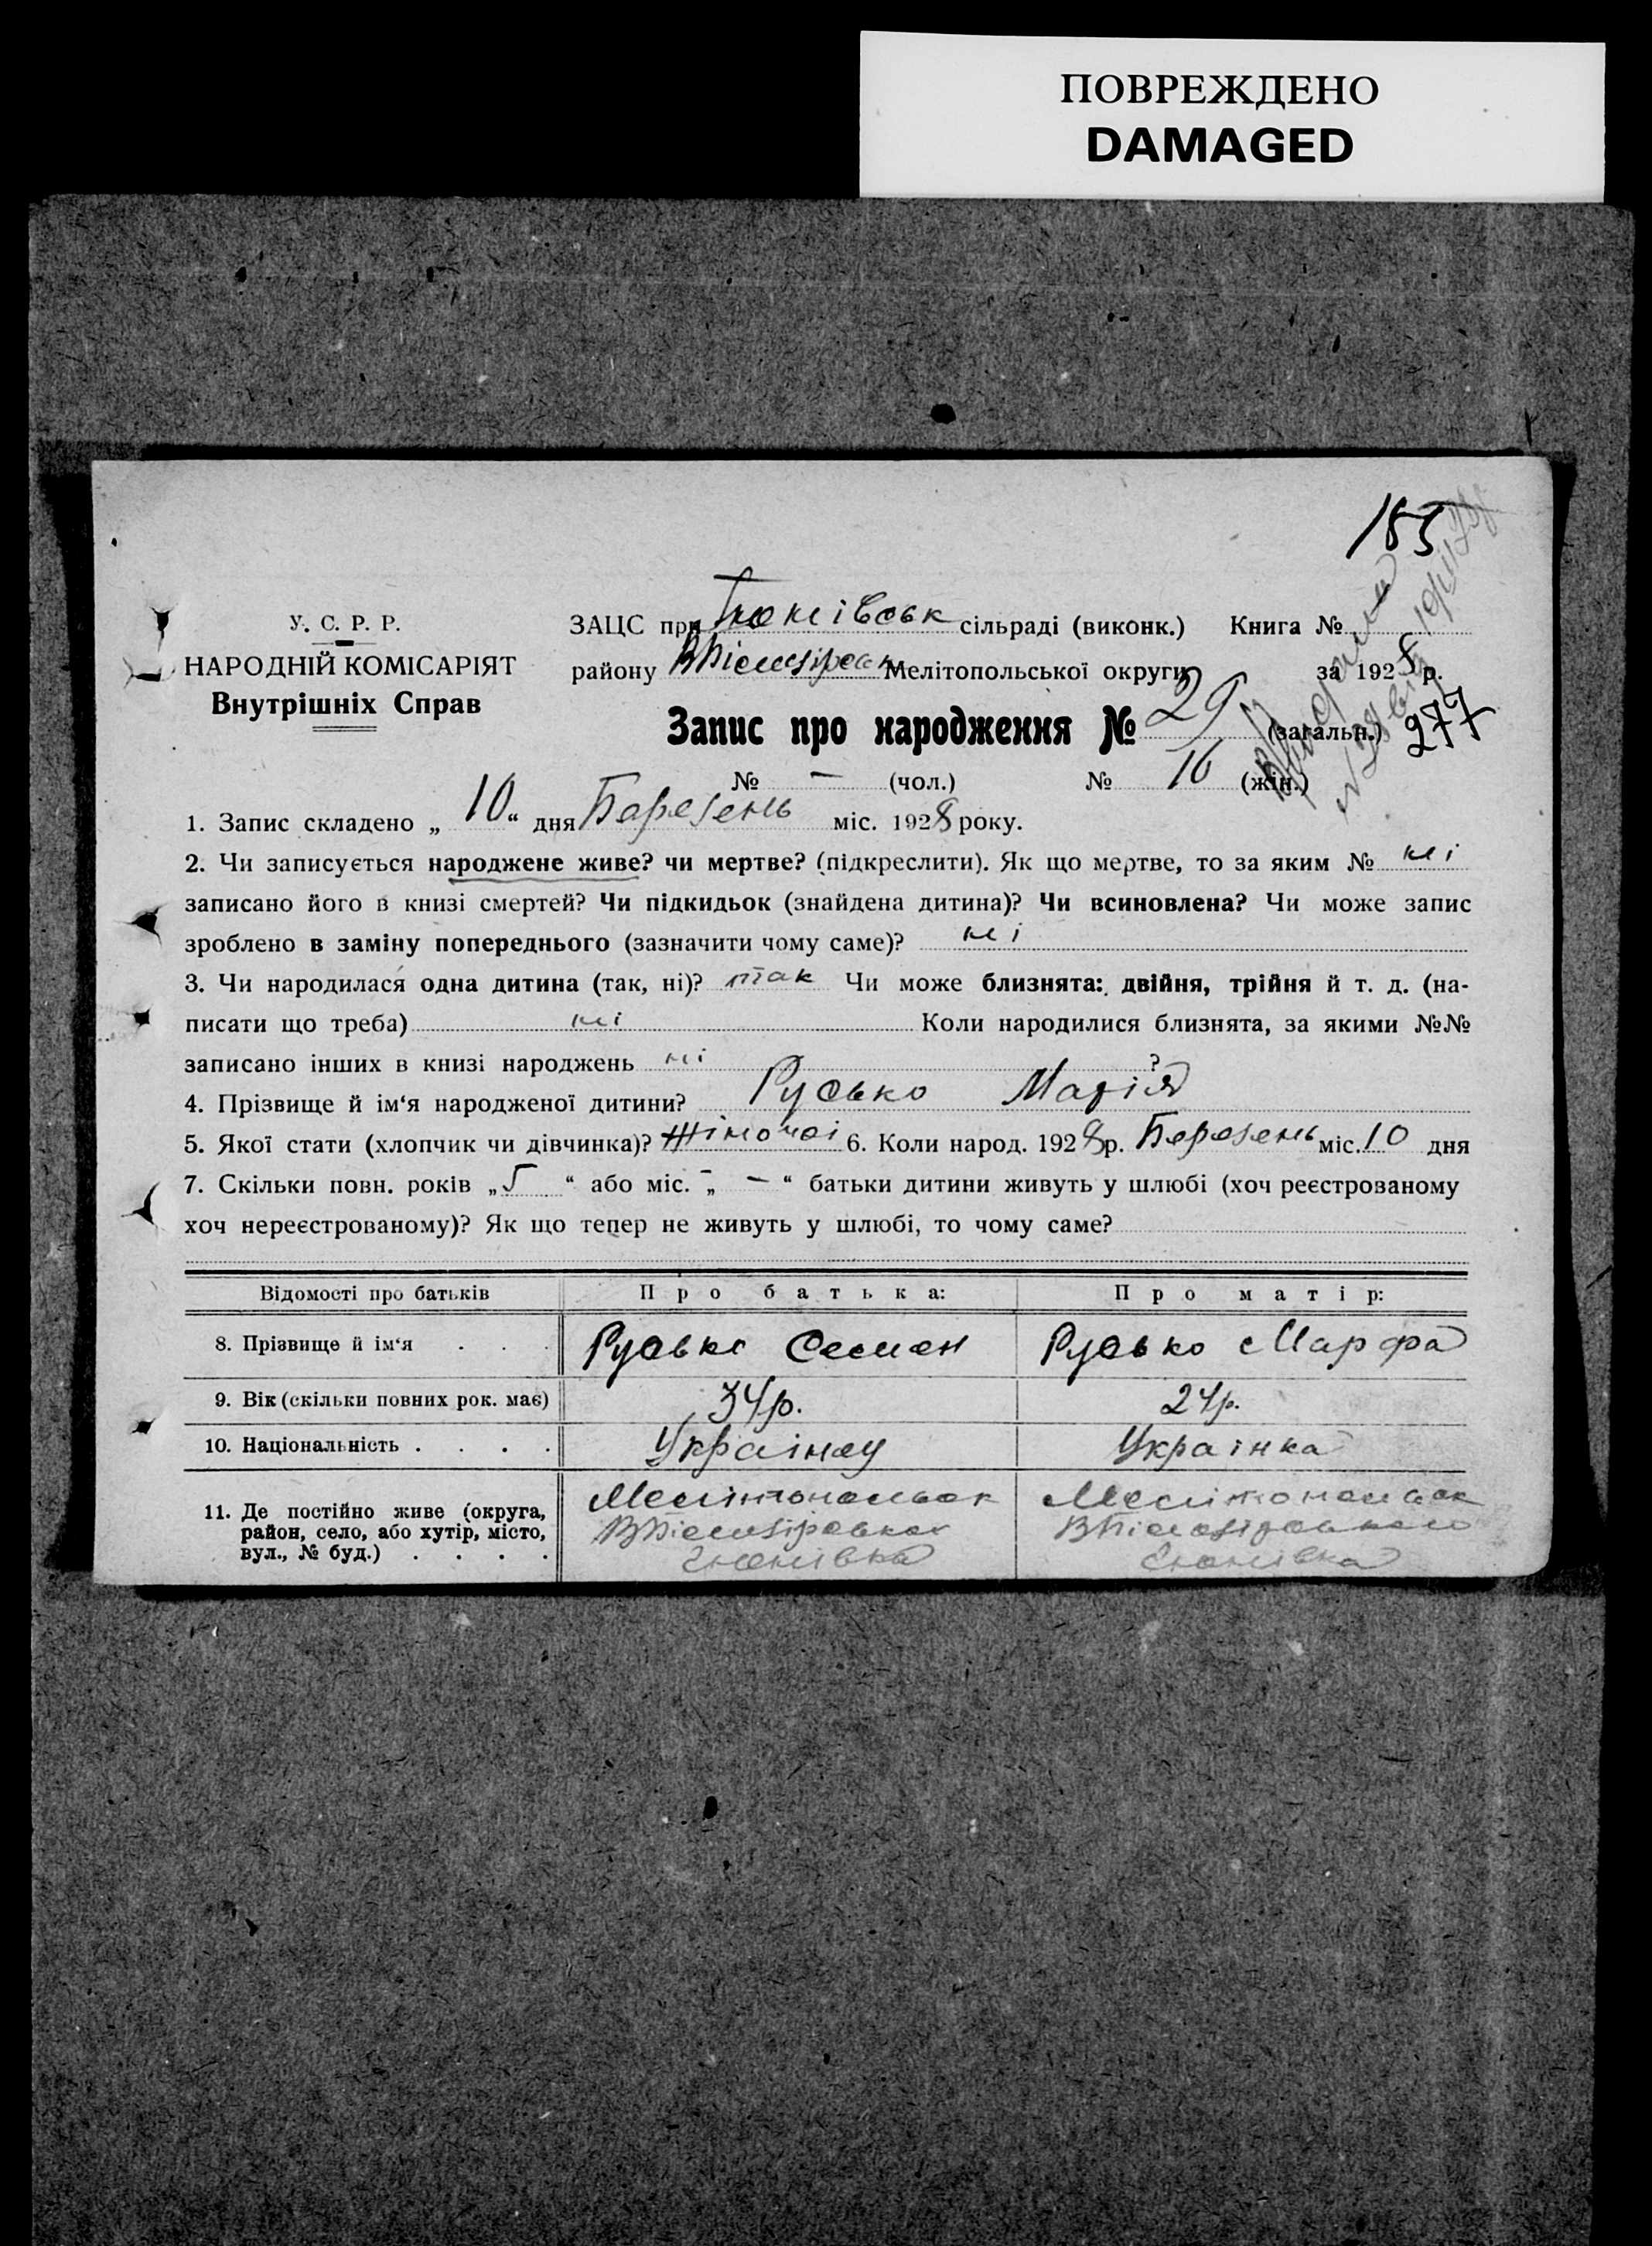 ПОВРЕЖДЕНО
DAMAGED
185
У. С. Р. Р.
НАРОДНІЙ КОМІСАРІЯТ
Внутрішніх Справ
ЗАЦС при сільраді (виконк.) Книга №
району Мелітопольської округи за 1928 р.
Запис про народження № 29 (загальн.) 277
№ — (чол.) № 16 (жін.)
1. Запис складено „ 10 “ дня Березень міс. 1928 року.
2. Чи записується народжене живе? чи мертве? (підкреслити). Як що мертве, то за яким № ні
записано його в книзі смертей? Чи підкидьок (знайдена дитина)? Чи всиновлена? Чи може запис
зроблено в заміну попереднього (зазначити чому саме)? ні
3. Чи народилася одна дитина (так, ні)? так Чи може близнята: двійня, трійня й т. д. (на-
писати що треба) ні Коли народилися близнята, за якими №№
записано інших в книзі народжень ні ?
4. Прізвище й ім‘я народженої дитини? Русько Марія
5. Якої стати (хлопчик чи дівчинка)? Жіночоі 6. Коли народ. 1928 р. Березень міс. 10 дня
7. Скільки повн. років „ 5 “ або міс. „ — “ батьки дитини живуть у шлюбі (хоч реєстрованому
хоч нереєстрованому)? Як що тепер не живуть у шлюбі, то чому саме?
Відомості про батьків Про батька: Про матір:
8. Прізвище й ім‘я . . . Русько Семен Русько Марфа
9. Вік (скільки повних рок. має) 34 р. 24 р.
10. Національність . . . . Українец Украінка
11. Де постійно живе (округа,
район, село, або хутір, місто,
вул., № буд.) . . . .